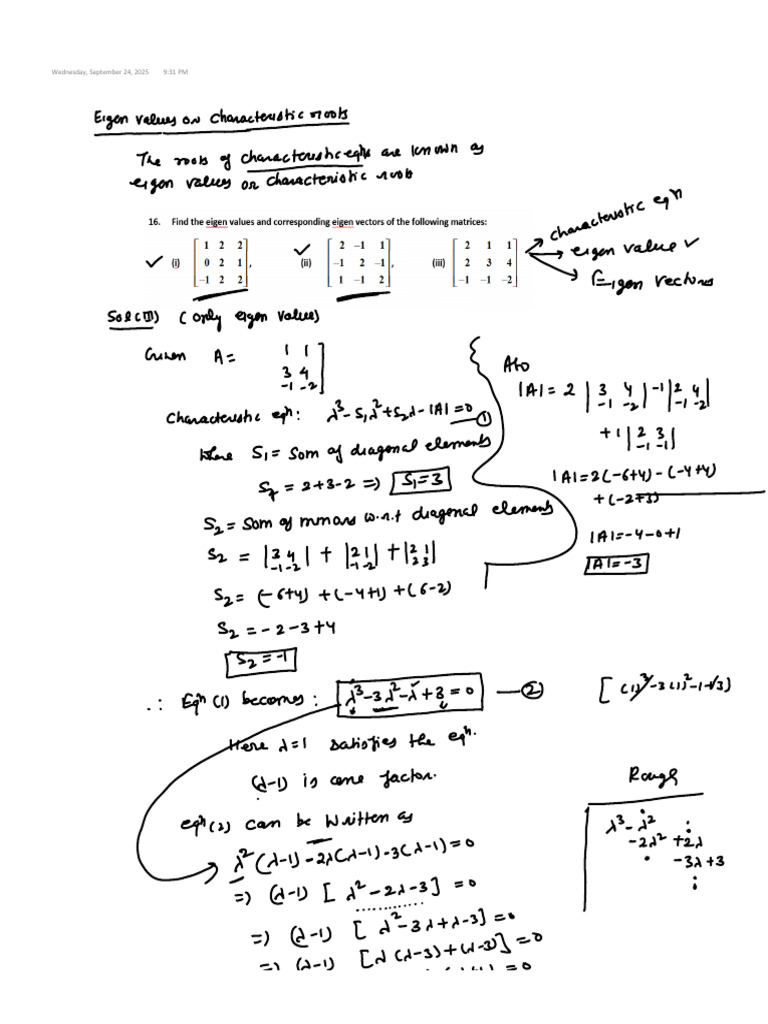 Wednesday, September 24, 2025 9:31 PM
Eigen values or characteristic roots
The roots of characteristic eqns are known as
eigen values or characteristic roots
16. Find the eigen values and corresponding eigen vectors of the following matrices:
(i) [1 2 2; 0 2 1; -1 2 2],
(ii) [2 -1 1; -1 2 -1; 1 -1 2],
(iii) [2 1 1; 2 3 4; -1 -1 -2]
→ characteristic eqn
→ eigen value ✓
→ Eigen vectors
Sol (III) (only eigen values)
Given A = 1 1
3 4
-1 -2]
Characteristic eqn: λ³ - S₁λ² + S₂λ - |A| = 0 ①
Where S₁ = Som of diagonal elements
= 2+3-2 => S₁=3
S₂ = Som of minors w.r.t diagonal elements
S₂ = |3 4; -1 -2| + |2 1; -1 -2| + |2 1; 2 3|
S₂ = (-6+4) + (-4+1) + (6-2)
S₂ = -2-3+4
S₂ = -1
Also
|A| = 2 |3 4; -1 -2| -1 |2 4; -1 -2|
+1 |2 3; -1 -1|
|A| = 2(-6+4) - (-4+4)
+ (-2+3)
|A| = -4-0+1
|A| = -3
∴ Eqn (1) becomes: λ³-3λ²-λ+3=0 — ②
Here λ=1 satisfies the eqn.
(λ-1) is one factor.
eqn (2) can be written as
λ²(λ-1) -2λ(λ-1) -3(λ-1) = 0
=) (λ-1) [λ²-2λ-3] = 0
=) (λ-1) [λ²-3λ+λ-3] = 0
=) (λ-1) [λ(λ-3)+(λ-3)] = 0
= 0
Rough
λ³-λ²
-2λ²+2λ
-3λ+3